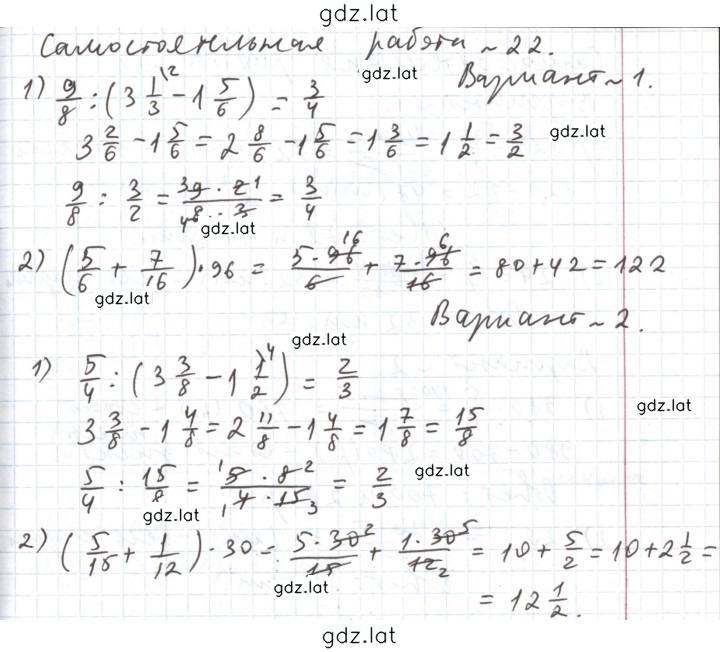 gdz.lat
Самостоятельная работа ~ 22.
gdz.lat
Вариант ~ 1.
1) 9/8 : (3 1/3 \2 - 1 5/6) = 3/4
3 2/6 - 1 5/6 = 2 8/6 - 1 5/6 = 1 3/6 = 1 1/2 = 3/2
gdz.lat
9/8 : 3/2 = 3 9 · 2 1 / 4 8 · 3 = 3/4
gdz.lat
2) (5/6 + 7/16) · 96 = 5 · 96 16 / 6 + 7 · 96 6 / 16 = 80 + 42 = 122
gdz.lat
Вариант ~ 2.
gdz.lat
1) 5/4 : (3 3/8 - 1 1/2 \4) = 2/3
gdz.lat
3 3/8 - 1 4/8 = 2 11/8 - 1 4/8 = 1 7/8 = 15/8
5/4 : 15/8 = 1 5 · 8 2 / 1 4 · 15 3 = 2/3
gdz.lat
gdz.lat
2) (5/15 + 1/12) · 30 = 5 · 30 2 / 15 + 1 · 30 5 / 12 2 = 10 + 5/2 = 10 + 2 1/2 =
gdz.lat
= 12 1/2.
gdz.lat